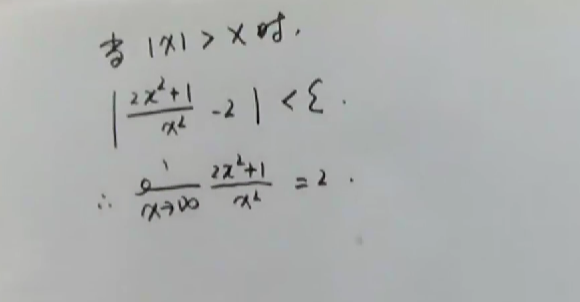 当 |x| > X 时,
|(2x²+1)/x² - 2| < ε.
∴ lim x→∞ (2x²+1)/x² = 2.